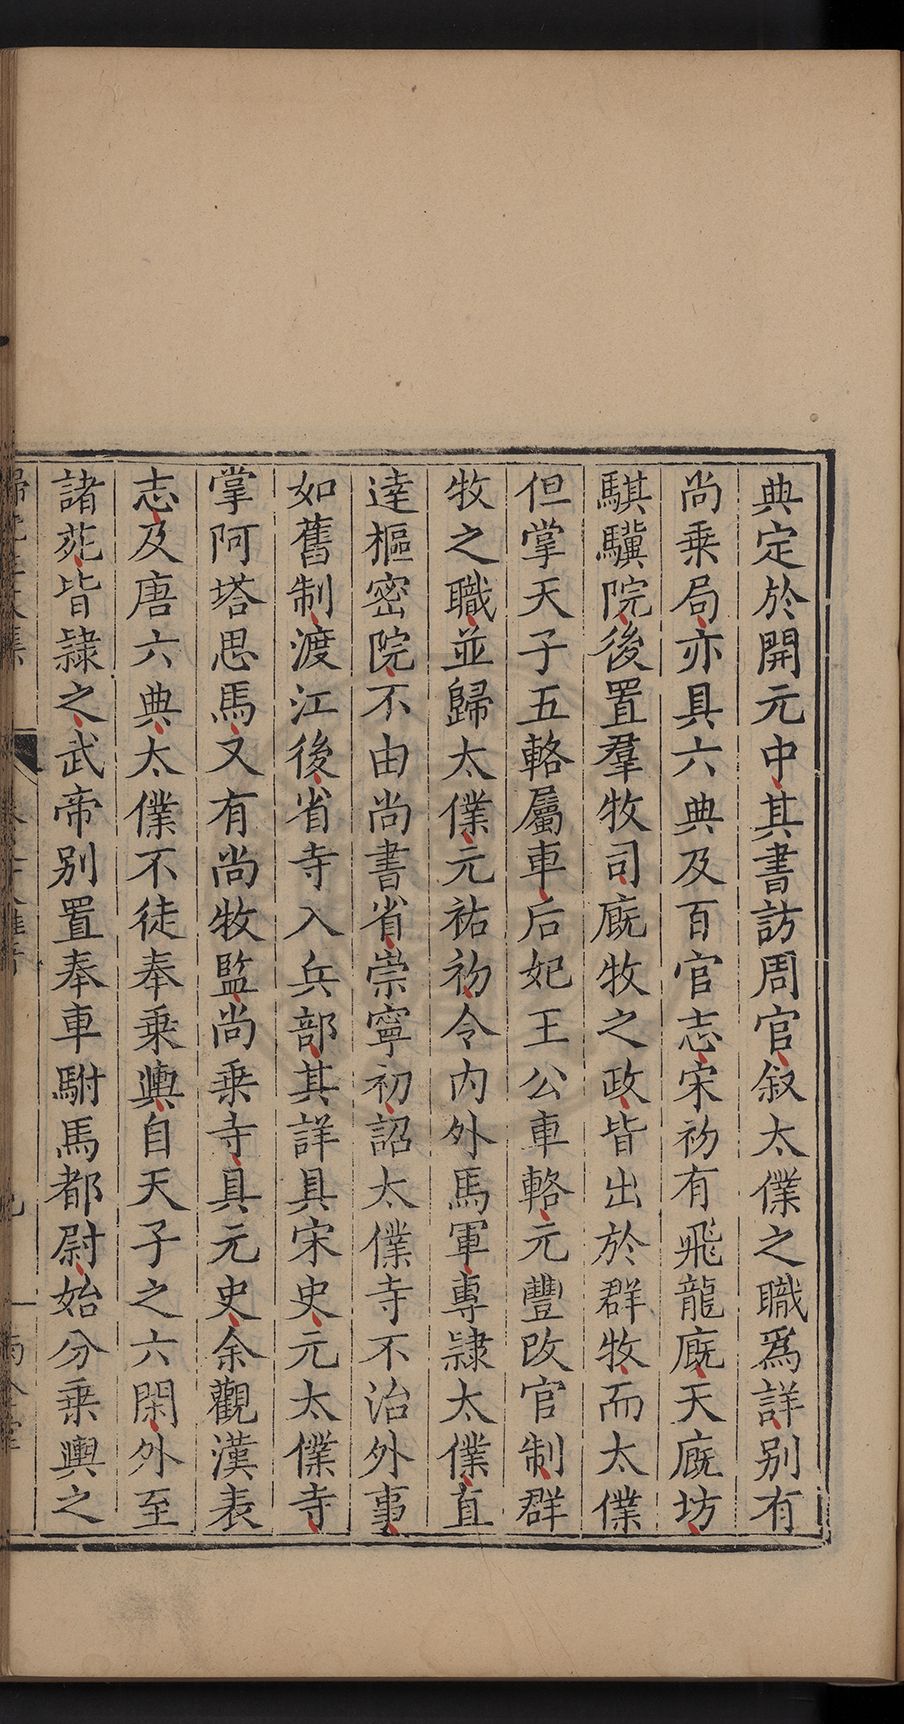 典定於開元中其書訪周官叙太僕之職爲詳别有
尚乗局亦具六典及百官志宋初有飛龍廐天廐坊
騏驥院後置羣牧司廐牧之政皆出於群牧而太僕
但掌天子五輅屬車后妃王公車輅元豐改官制群
牧之職並歸太僕元祐初令内外馬軍專隷太僕直
達樞密院不由尚書省崇寧初詔太僕寺不治外事
如舊制渡江後省寺入兵部其詳具宋史元太僕寺
掌阿塔思馬又有尚牧監尚乗寺具元史余觀漢表
志及唐六典太僕不徒奉乗輿自天子之六閑外至
諸苑皆隷之武帝别置奉車駙馬都尉始分乗輿之